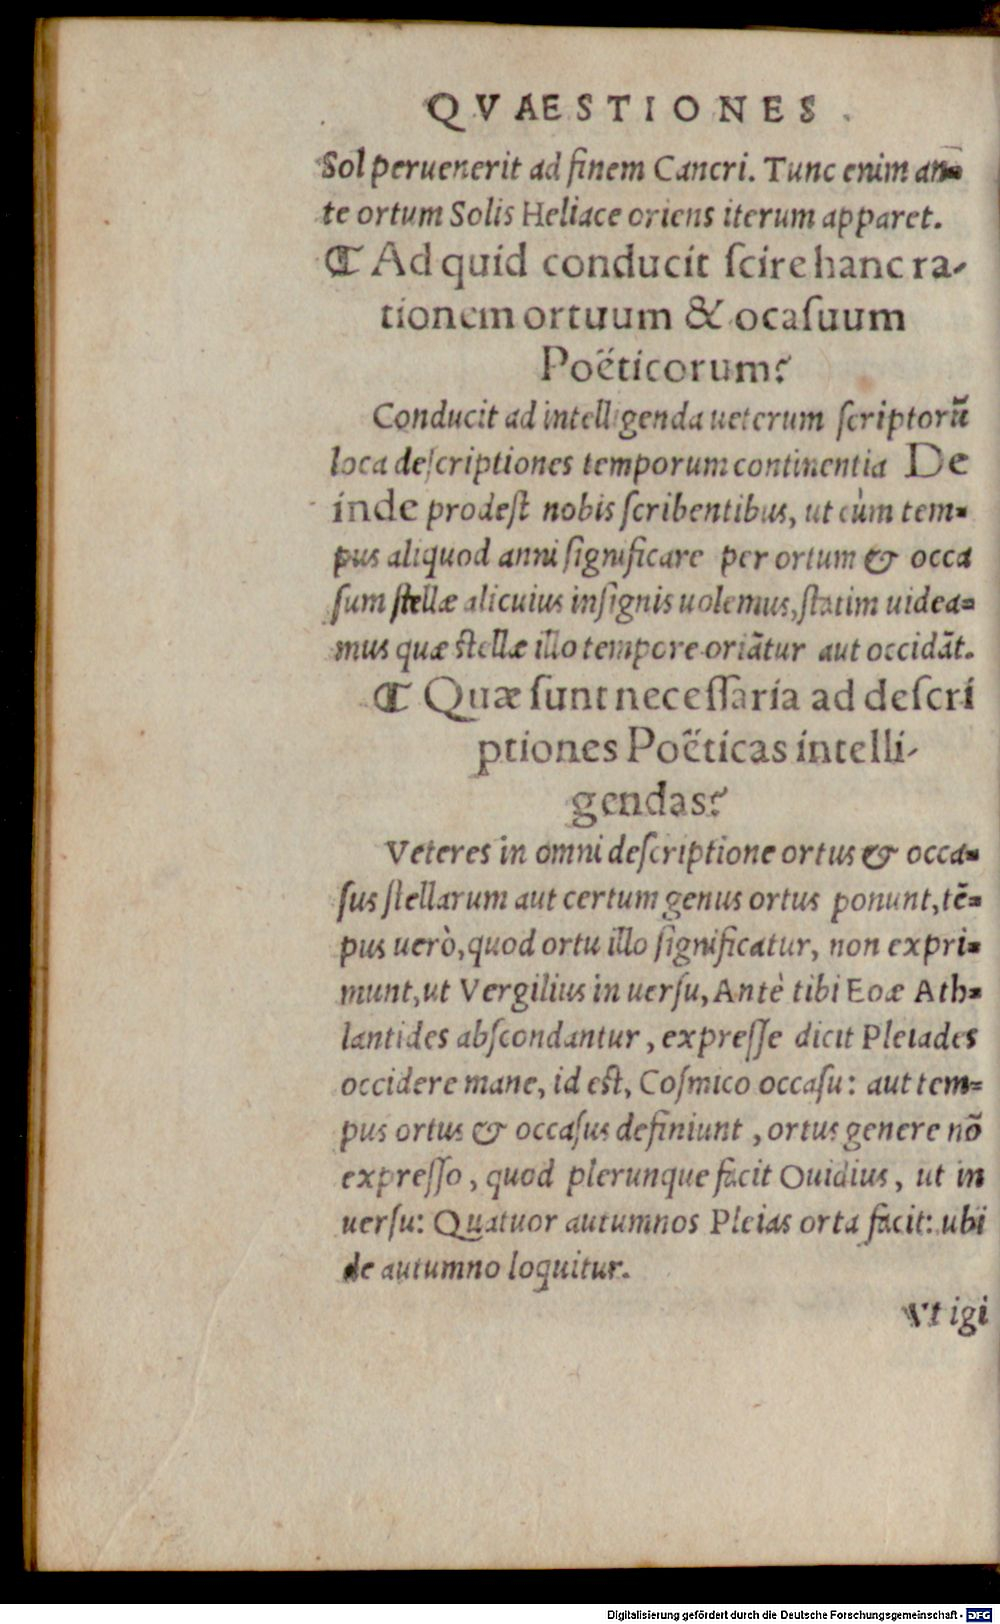 QVAESTIONES.
Sol peruenerit ad finem Cancri. Tunc enim an=
te ortum Solis Heliace oriens iterum apparet.
¶ Ad quid conducit ſcire hanc ra-
tionem ortuum & ocaſuum
Poëticorum?
Conducit ad intelligenda ueterum ſcriptorū
loca deſcriptiones temporum continentia De
inde prodeſt nobis ſcribentibus, ut cùm tem=
pus aliquod anni ſignificare per ortum & occa
ſum ſtellæ alicuius inſignis uolemus, ſtatim uidea=
mus quæ ſtellæ illo tempore oriātur aut occidāt.
¶ Quæ ſunt neceſſaria ad deſcri
ptiones Poëticas intelli-
gendas?
Veteres in omni deſcriptione ortus & occa=
ſus ſtellarum aut certum genus ortus ponunt, tē=
pus uerò, quod ortu illo ſignificatur, non expri=
munt, ut Vergilius in uerſu, Antè tibi Eoæ Ath=
lantides abſcondantur, expreſſe dicit Pleiades
occidere mane, id eſt, Coſmico occaſu: aut tem=
pus ortus & occaſus definiunt, ortus genere nō
expreſſo, quod plerunque facit Ouidius, ut in
uerſu: Quatuor autumnos Pleias orta facit: ubi
de autumno loquitur.
Vt igi
Digitalisierung gefördert durch die Deutsche Forschungsgemeinschaft - DFG